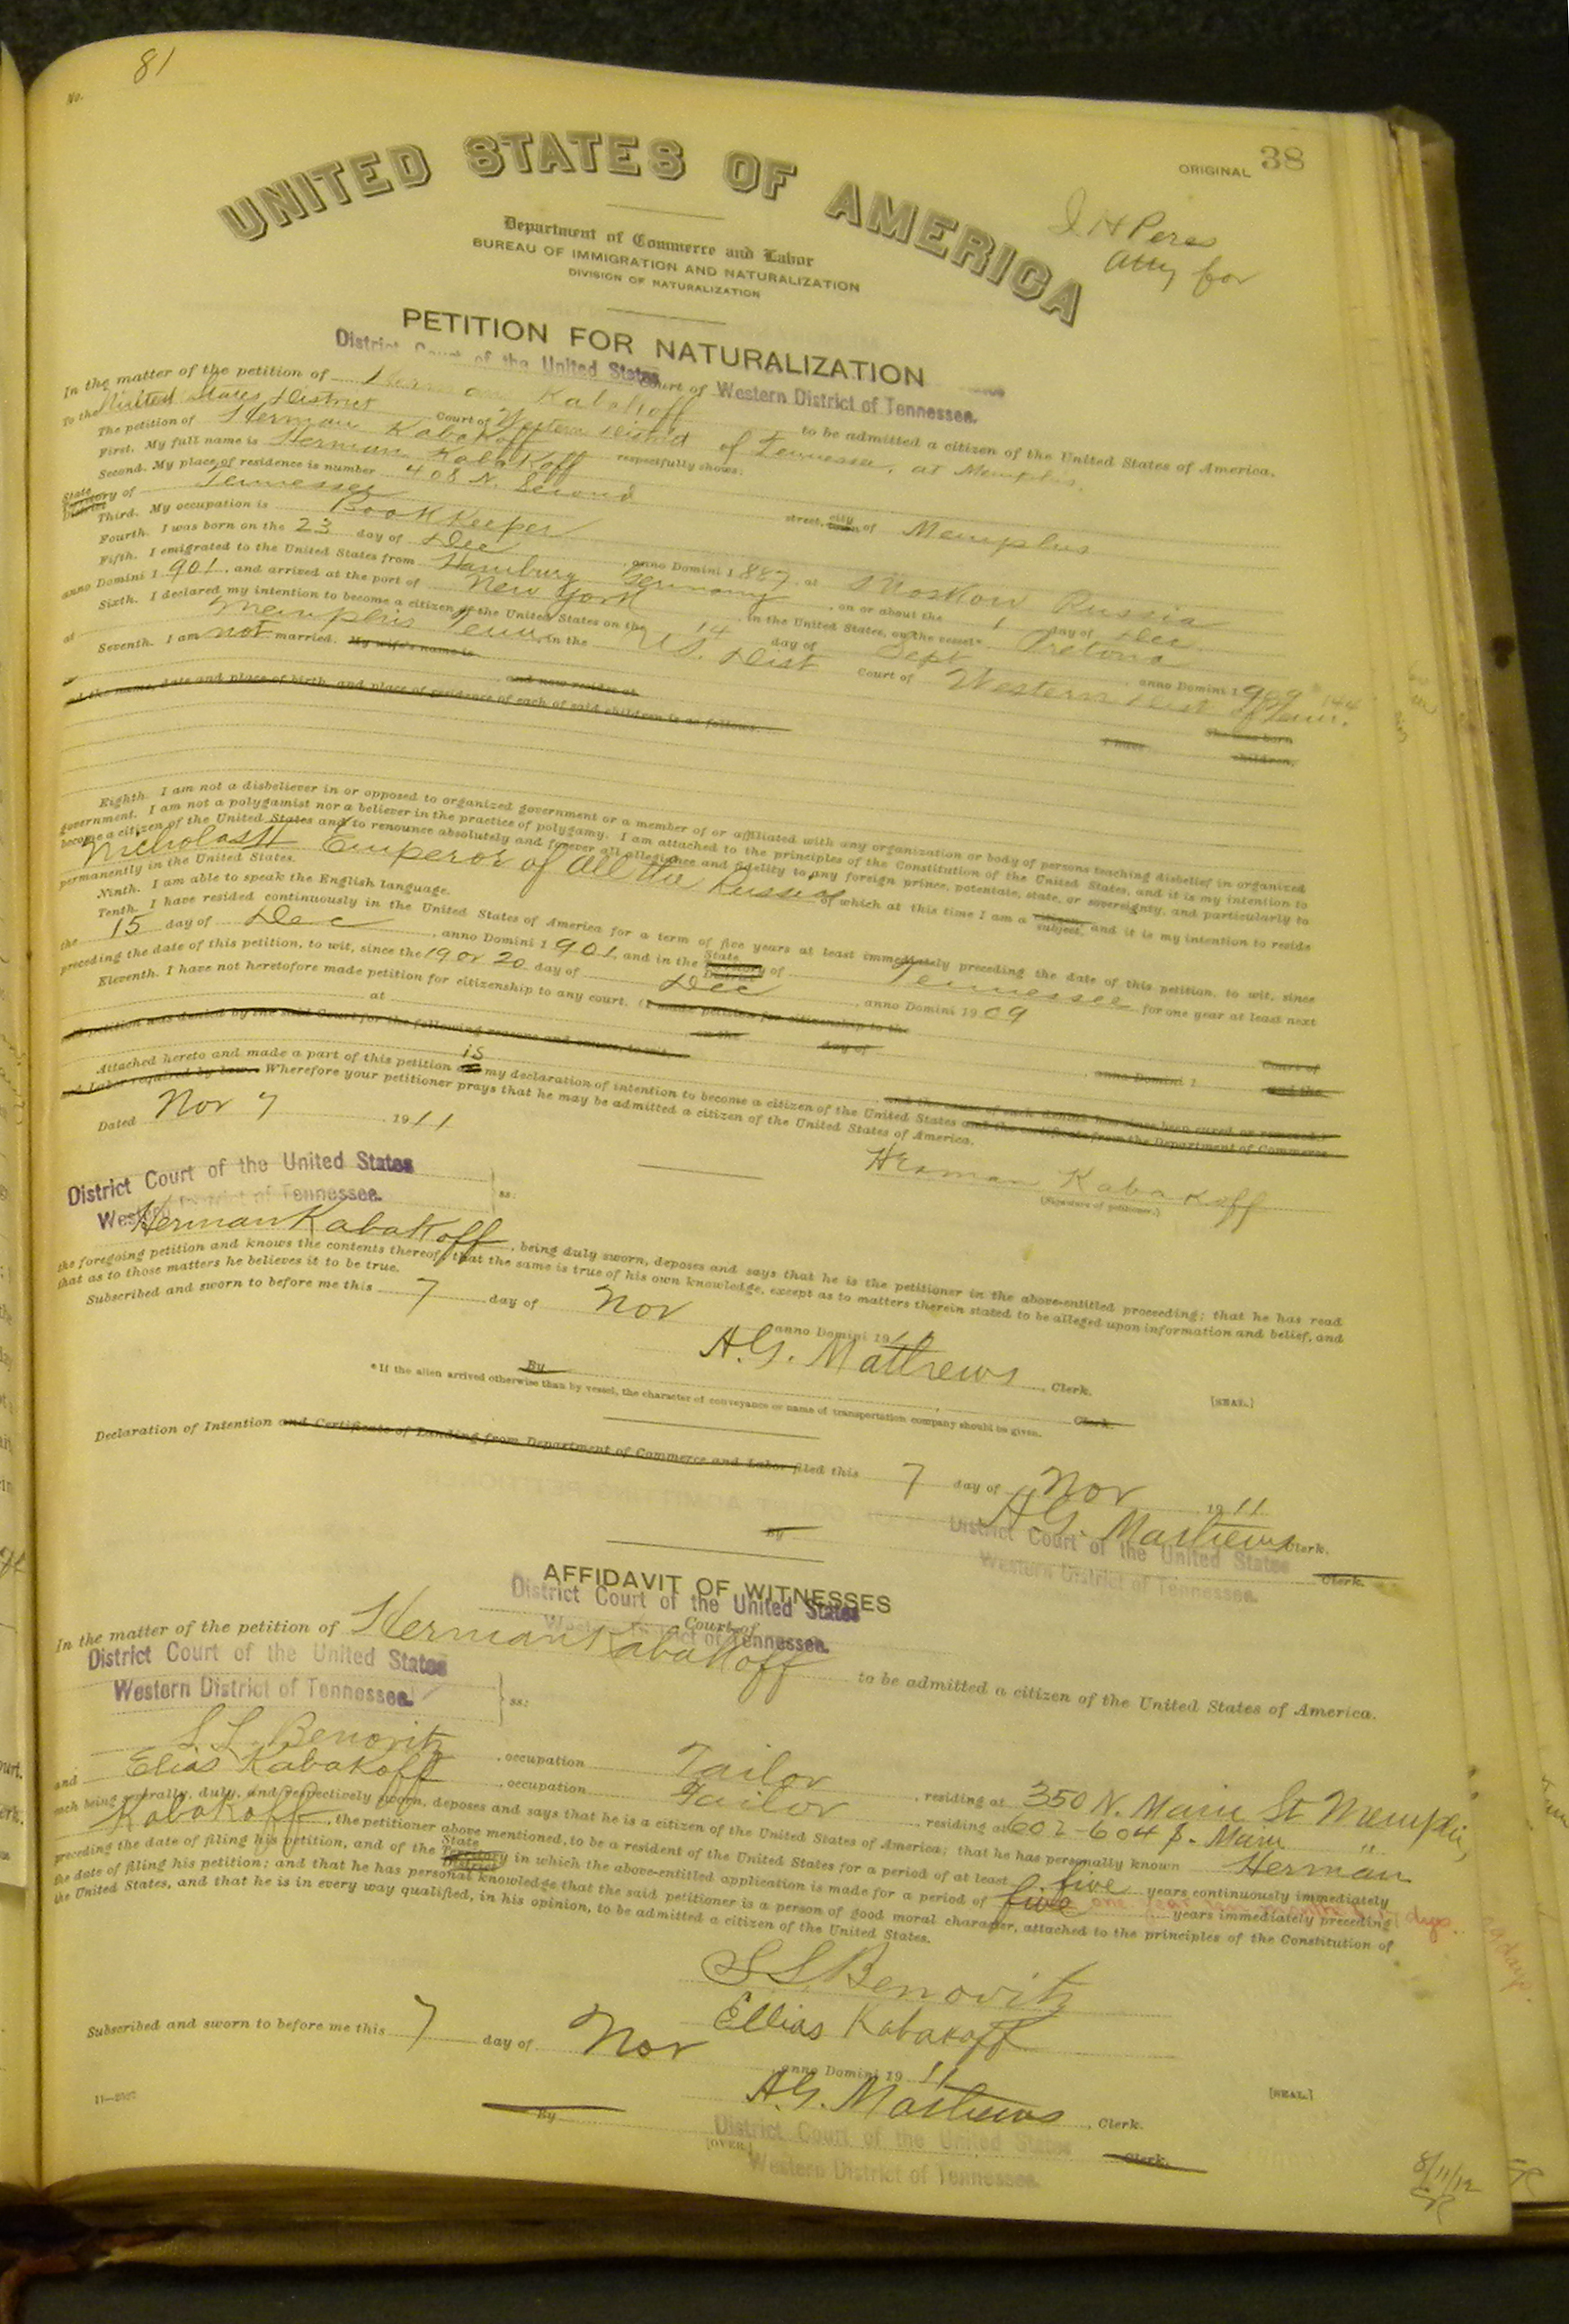 No. 81
ORIGINAL 38
UNITED STATES OF AMERICA
I H Peres
Atty for
Department of Commerce and Labor
BUREAU OF IMMIGRATION AND NATURALIZATION
DIVISION OF NATURALIZATION
PETITION FOR NATURALIZATION
District Court of the United States Court of Western District of Tennessee.
In the matter of the petition of Herman Kabakoff to be admitted a citizen of the United States of America.
To the United States District Court of Western District of Tennessee, at Memphis.
The petition of Herman Kabakoff respectfully shows:
First. My full name is Herman Kabakoff
Second. My place of residence is number 408 N. Second street, city of Memphis
State Territory District of Tennessee
Third. My occupation is Bookkeeper
Fourth. I was born on the 23 day of Dec, anno Domini 1887, at Moskow Russia
Fifth. I emigrated to the United States from Hamburg Germany, on or about the 1 day of Dec
anno Domini 1901, and arrived at the port of New York in the United States, on the vessel* Pretoria
Sixth. I declared my intention to become a citizen of the United States on the 14 day of Sept, anno Domini 1909
at Memphis Tenn, in the U.S. Dist Court of Western Dist of Tenn.
Seventh. I am not married. My wife's name is She was born
and now resides at I have children,
and the name, date and place of birth, and place of residence of each of said children is as follows
Eighth. I am not a disbeliever in or opposed to organized government or a member of or affiliated with any organization or body of persons teaching disbelief in organized
government. I am not a polygamist nor a believer in the practice of polygamy. I am attached to the principles of the Constitution of the United States, and it is my intention to
become a citizen of the United States and to renounce absolutely and forever all allegiance and fidelity to any foreign prince, potentate, state, or sovereignty, and particularly to
Nicholas II Emperor of All the Russias of which at this time I am a citizen subject, and it is my intention to reside
permanently in the United States.
Ninth. I am able to speak the English language.
Tenth. I have resided continuously in the United States of America for a term of five years at least immediately preceding the date of this petition, to wit, since
the 15 day of Dec, anno Domini 1901, and in the State Territory District of Tennessee for one year at least next
preceding the date of this petition, to wit, since the 19 or 20 day of Dec, anno Domini 1909
Eleventh. I have not heretofore made petition for citizenship to any court. (I made petition for citizenship to the Court of
at on the day of, anno Domini 1 and the
said petition was denied by the said Court for the following reasons and causes, to wit, and the cause of such denial has since been cured or removed.)
Attached hereto and made a part of this petition is my declaration of intention to become a citizen of the United States and the certificate from the Department of Commerce
and Labor required by law. Wherefore your petitioner prays that he may be admitted a citizen of the United States of America.
Dated Nov 7 1911
Herman Kabakoff
(Signature of petitioner.)
District Court of the United States
Western District of Tennessee. ss:
Herman Kabakoff, being duly sworn, deposes and says that he is the petitioner in the above-entitled proceeding; that he has read
the foregoing petition and knows the contents thereof; that the same is true of his own knowledge, except as to matters therein stated to be alleged upon information and belief, and
that as to those matters he believes it to be true.
Subscribed and sworn to before me this 7 day of Nov anno Domini 1911
A.G. Matthews, Clerk. [SEAL.]
By Clerk.
*If the alien arrived otherwise than by vessel, the character of conveyance or name of transportation company should be given.
Declaration of Intention and Certificate of Landing from Department of Commerce and Labor filed this 7 day of Nov 1911
A.G. Matthews Clerk.
By Clerk.
District Court of the United States
Western District of Tennessee.
AFFIDAVIT OF WITNESSES
District Court of the United States
Court of
Western District of Tennessee.
In the matter of the petition of Herman Kabakoff to be admitted a citizen of the United States of America.
District Court of the United States
Western District of Tennessee. ss:
S. L. Benovitz, occupation Tailor, residing at 350 N. Main St Memphis,
and Elias Kabakoff, occupation Tailor, residing at 602-604 S. Main "
each being severally, duly, and respectively sworn, deposes and says that he is a citizen of the United States of America; that he has personally known Herman
Kabakoff, the petitioner above mentioned, to be a resident of the United States for a period of at least five years continuously immediately
preceding the date of filing his petition, and of the State Territory District in which the above-entitled application is made for a period of five one year years immediately preceding
the date of filing his petition; and that he has personal knowledge that the said petitioner is a person of good moral character, attached to the principles of the Constitution of
the United States, and that he is in every way qualified, in his opinion, to be admitted a citizen of the United States.
S. L. Benovitz
Ellias Kabakoff
Subscribed and sworn to before me this 7 day of Nov anno Domini 1911
A.G. Matthews, Clerk. [SEAL.]
By Clerk.
[OVER.]
District Court of the United States
Western District of Tennessee.
8/11/12